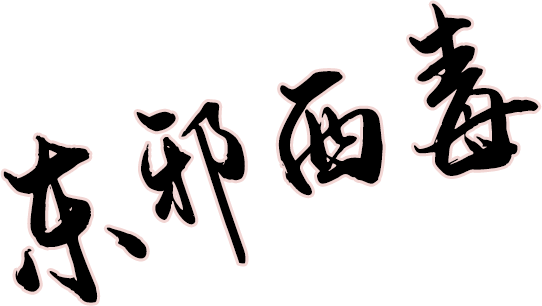 东邪西毒